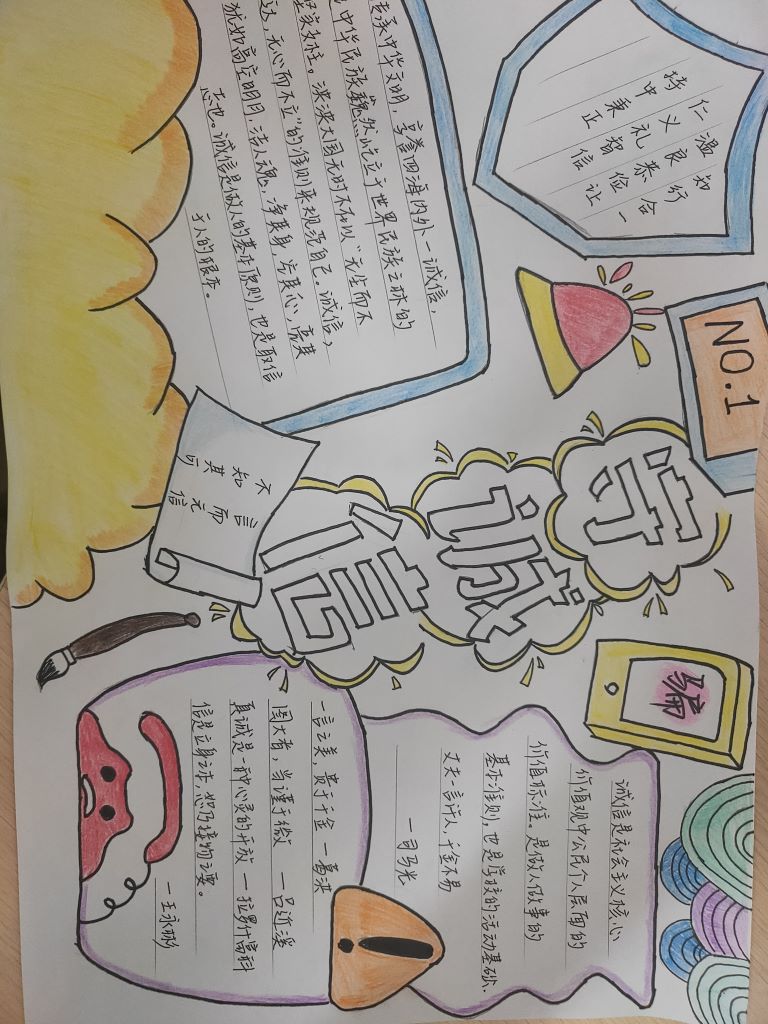 持中秉正
仁义礼智信
温良恭俭让
知行合一
NO.1
守诚信
骗
传承中华文明，享誉四海内外一诚信，
中华民族巍然屹立于世界民族之林的
坚实支柱。泱泱大国无时不在以“无生而不
达，无心而不立”的准则来规范自己。诚信，
犹如高空的明月，洁人魂，净其身，芳其心，亮其
志也。诚信是做人的基本原则，也是取信
于人的根本。
言而无信
不知其可
诚信是社会主义核心
价值观中公民个人层面的
价值标准。是做人做事的
基本准则，也是学校的活动基础.
丈夫一言许人，千金不易
一司马光
一言之美，贵于千金 一葛洪
图大者，当谨于微 一吕近溪
真诚是一种心灵的开放 一拉罗什富科
信是立身之本，恕乃接物之要。
一王永彬